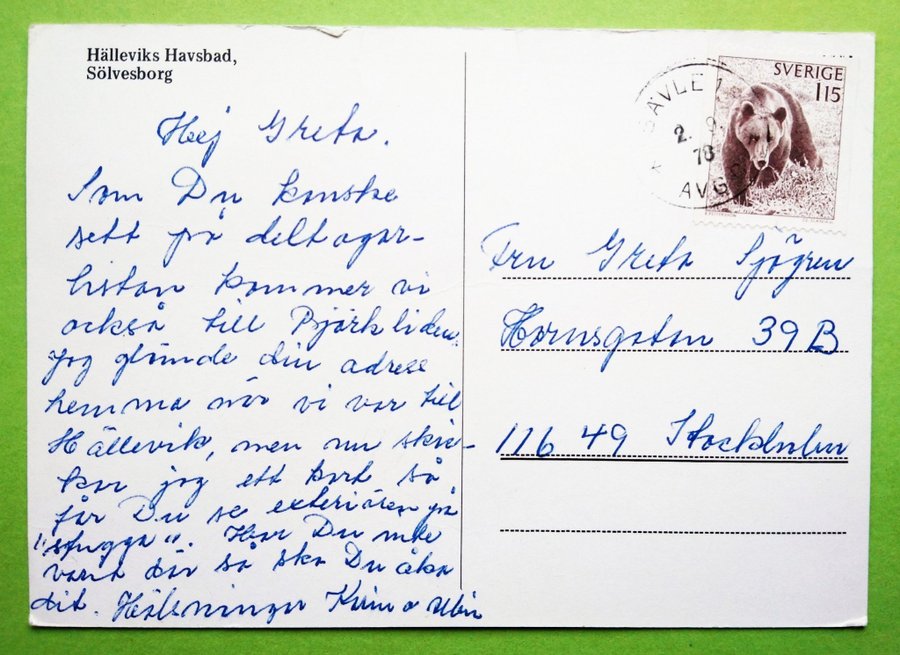 Hälleviks Havsbad,
Sölvesborg
Hej Greta.
Som Du kanske
sett på deltagar-
listan kommer vi
också till Björkliden.
Jag glömde din adress
hemma när vi var till
Hällevik, men nu skic-
kar jag ett kort så
får Du se exteriören på
"stugga". Har Du inte
varit där så ska Du åka
dit. Hälsningar
SVERIGE
115
GÄVLE 1
2. 9.
78
AVG
Fru Greta Sjögren
Hornsgatan 39B
116 49 Stockholm